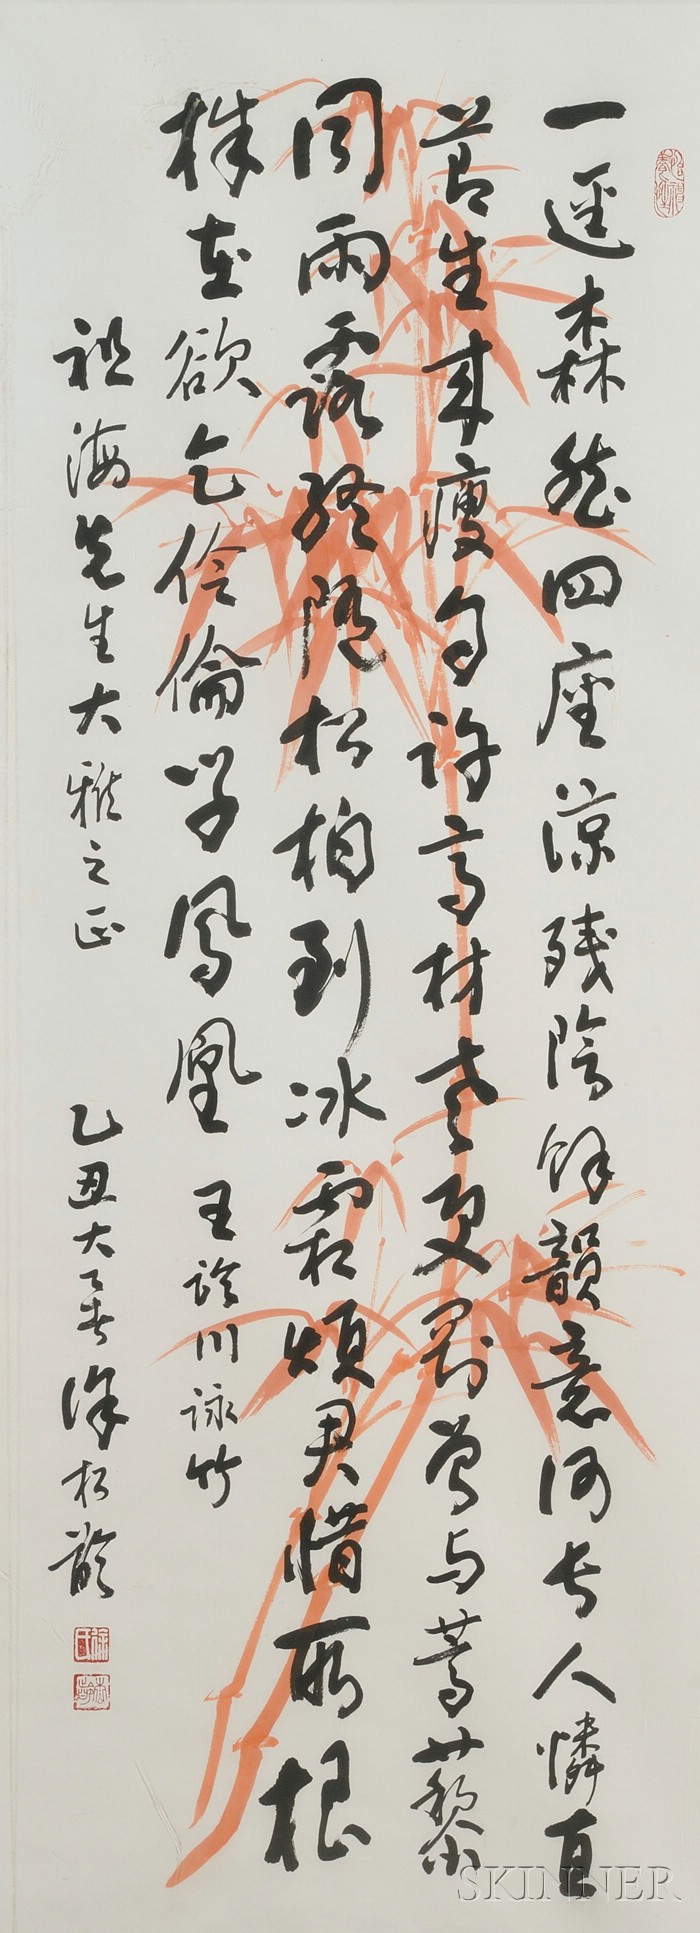 一逕森然四座涼殘陰餘韻意何長人憐直
節生來瘦自許高材老更剛曾与蒿藜
同雨露終隨松柏到冰霜煩君惜取根
株在欲乞伶倫學鳳凰 王臨川詠竹
祖海先生大雅之正 乙丑大暑徐松齡
徐氏
松齡
SKINNER